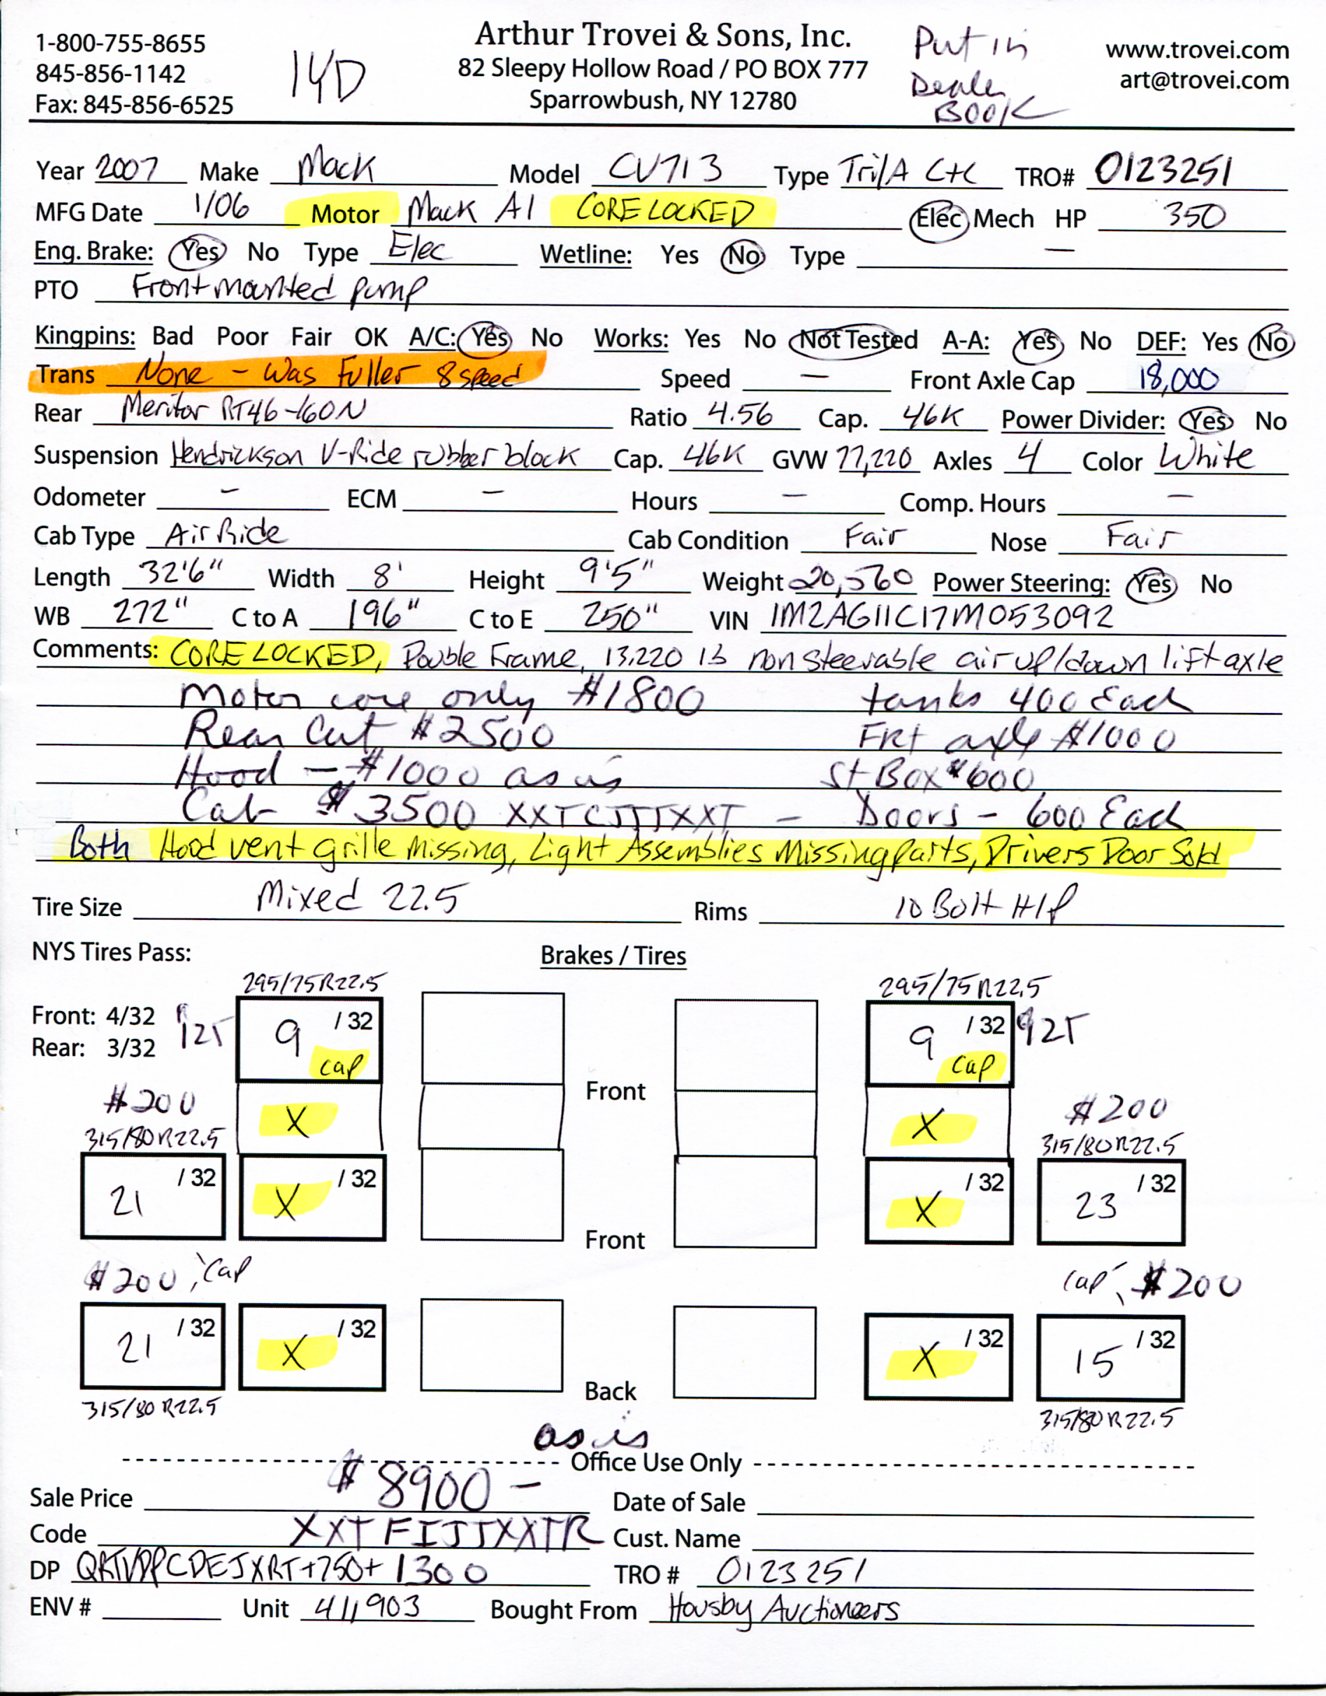 1-800-755-8655
845-856-1142
Fax: 845-856-6525
14D
Arthur Trovei & Sons, Inc.
82 Sleepy Hollow Road / PO BOX 777
Sparrowbush, NY 12780
Put in
Dealer
BOOK
www.trovei.com
art@trovei.com
Year 2007 Make Mack Model CV713 Type Tri/A C+C TRO# 0123251
MFG Date 1/06 Motor Mack A1 CORE LOCKED Elec Mech HP 350
Eng. Brake: Yes No Type Elec Wetline: Yes No Type —
PTO Front mounted pump
Kingpins: Bad Poor Fair OK A/C: Yes No Works: Yes No Not Tested A-A: Yes No DEF: Yes No
Trans None - Was Fuller 8 speed Speed — Front Axle Cap 18,000
Rear Meritor RT46-160N Ratio 4.56 Cap. 46K Power Divider: Yes No
Suspension Hendrickson V-Ride rubber block Cap. 46K GVW 77,220 Axles 4 Color White
Odometer — ECM — Hours — Comp. Hours —
Cab Type Air Ride Cab Condition Fair Nose Fair
Length 32'6" Width 8' Height 9'5" Weight 20,560 Power Steering: Yes No
WB 272" C to A 196" C to E 250" VIN 1M2AG11C17M053092
Comments: CORE LOCKED, Double Frame, 13,220 lb non steerable air up/down lift axle
Motor core only $1800 tanks 400 Each
Rear Cut $2500 Frt axle $1000
Hood - $1000 as is St Box $600
Cab $3500 XXTCJTTXXT - Doors - 600 Each
Both Hood vent grille missing, Light Assemblies Missing parts, Drivers Door Sold
Tire Size Mixed 22.5 Rims 10 Bolt H/P
NYS Tires Pass: Brakes / Tires
295/75R22.5 295/75R22.5
Front: 4/32 125 9 /32 cap 9 /32 cap 125
Rear: 3/32
Front
$200 X X $200
315/80R22.5 315/80R22.5
21 /32 X /32 X /32 23 /32
Front
$200 Cap Cap $200
21 /32 X /32 X /32 15 /32
Back
315/80R22.5 315/80R22.5
as is
Office Use Only
Sale Price $8900 - Date of Sale
Code XXTFIJTXXTR Cust. Name
DP +750+1300 TRO # 0123251
ENV # Unit 411903 Bought From Housby Auctioneers